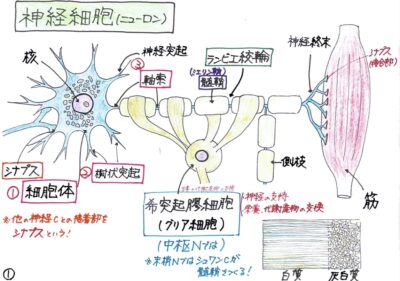 神経細胞(ニューロン)
核
神経突起
③
軸索
ランビエ絞輪
(ミエリン鞘)
髄鞘
神経終末
シナプス
(接合部)
シナプス
②
樹状突起
①
細胞体
※他の神経Cとの接着部を
シナプスという!
希突起膠細胞
(グリア細胞)
(中枢Nでは)
※末梢NではシュワンCが
髄鞘をつくる!
神経の支持
栄養、代謝産物の交換
側枝
筋
白質
灰白質
①